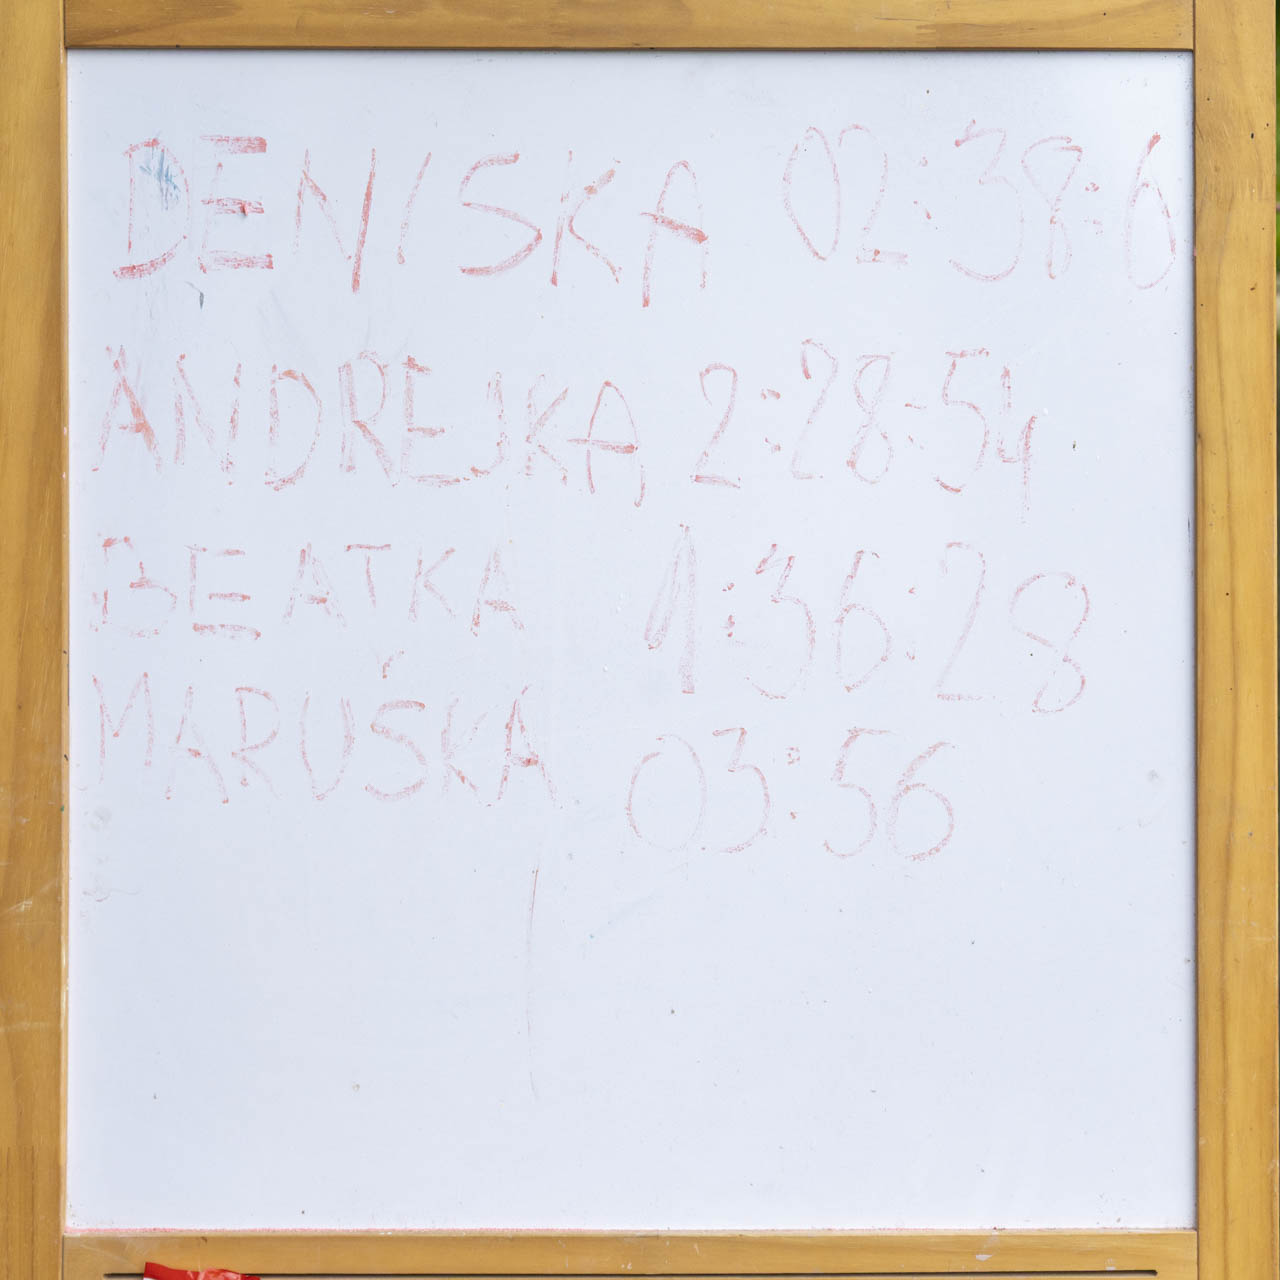 DENISKA 02:38:6
ANDREJKA 2:28:54
BEATKA 1:36:28
MARUŠKA 03:56